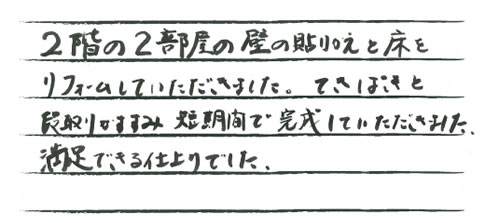 ２階の２部屋の壁の貼りかえと床を
リフォームしていただきました。てきぱきと
段取りがすすみ短期間で完成していただきました。
満足できる仕上りでした。